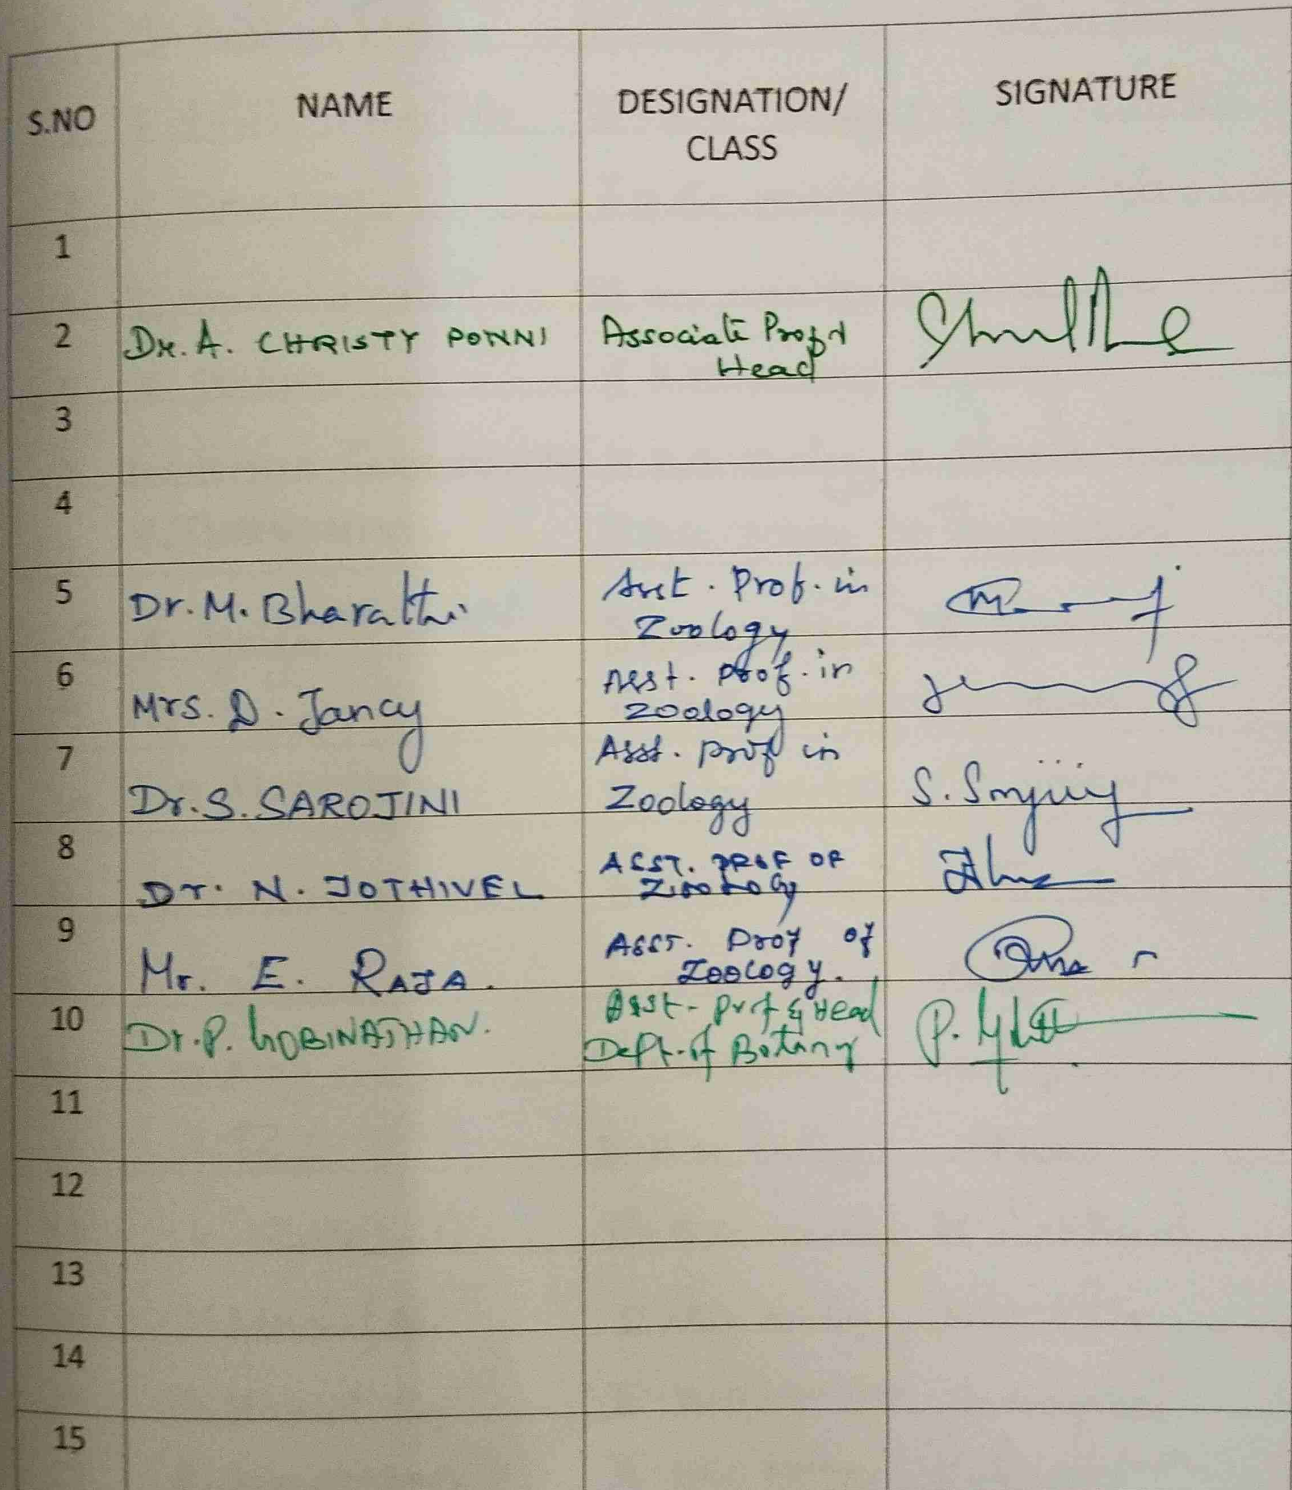 S.NO NAME DESIGNATION/ SIGNATURE
CLASS
1
2 Dr. A. CHRISTY PONNI Associate Prof &
Head
3
4
5 Dr. M. Bharathi Asst. Prof. in
Zoology
6 Mrs. D. Jancy Asst. Prof. in
Zoology
7 Dr. S. SAROJINI Asst. Prof in S. Sarojini
Zoology
8 Dr. N. JOTHIVEL ASST. PROF OF
Zoology
9 Mr. E. RAJA. ASST. Prof of
Zoology.
10 Dr. P. GOBINATHAN. Asst. Prof & Head P.
Dept. of Botany
11
12
13
14
15